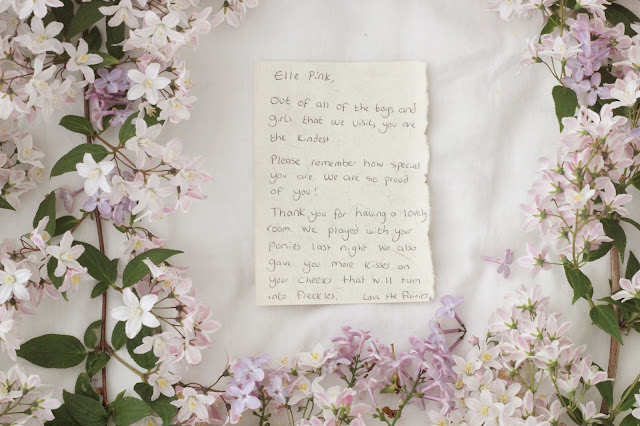 Elle Pink,
Out of all of the boys and
girls that we visit, you are
the kindest.
Please remember how special
you are. We are so proud
of you!
Thank you for having a lovely
room. We played with your
ponies last night. We also
gave you more kisses on
your cheeks that will turn
into freckles. Love the Fairies